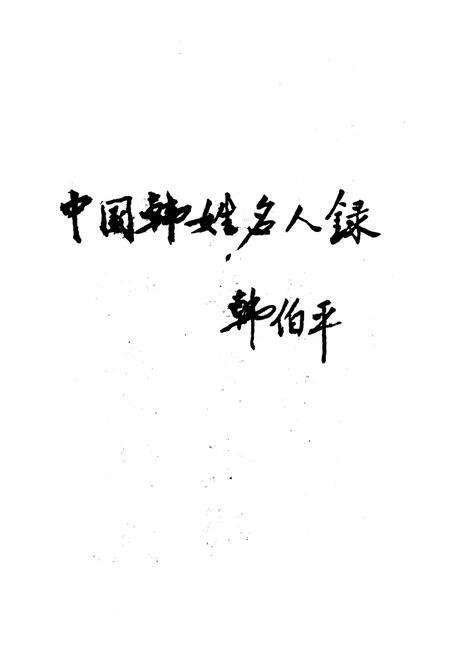 中国韩姓名人録
韩伯平